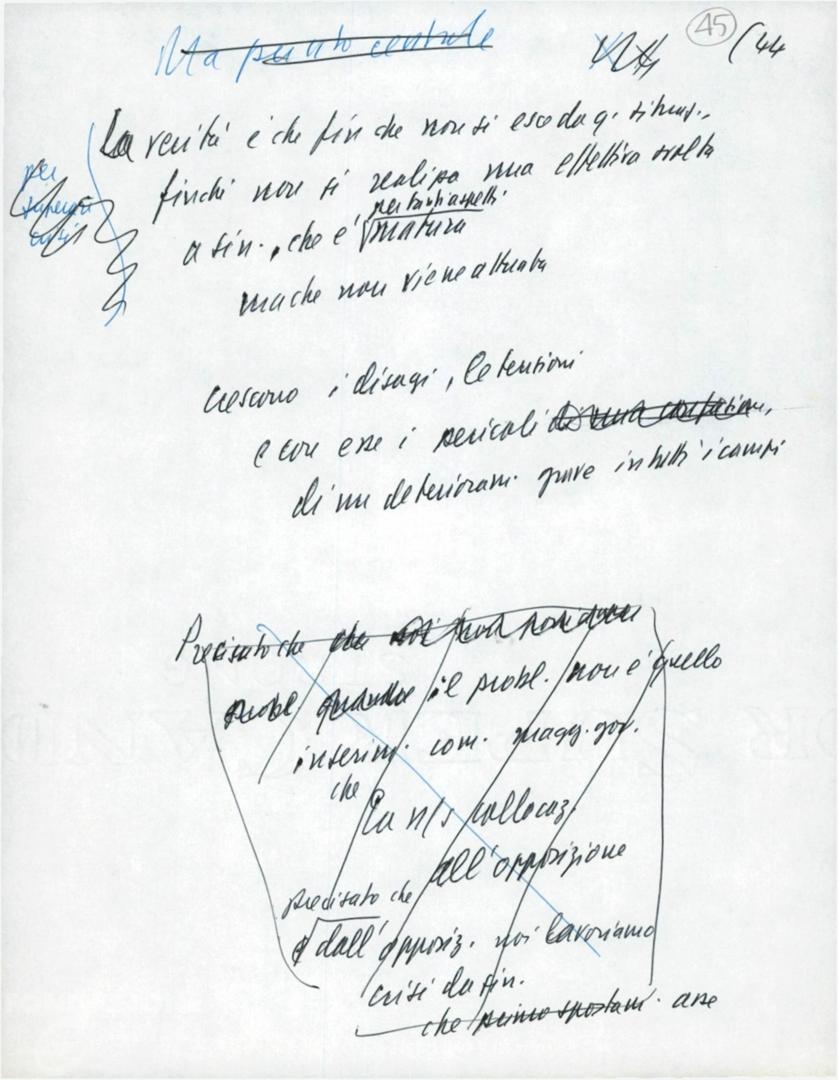 45
(44
Ma punto centrale
La verità è che finché non si esce da q. situaz.,
finché non si realizza una effettiva svolta
per tanti aspetti
a sin., che è matura
ma che non viene attuata
per
superare
crisi
crescono i disagi, le tensioni
e con esse i pericoli di una
di un deterioram. grave in tutti i campi
Precisato che
probl il probl. non è quello
inserim. com. magg. gov.
che
la n/s collocaz.
all'opposizione
precisato che
dall'opposiz. noi lavoriamo
crisi da sin.
che asse